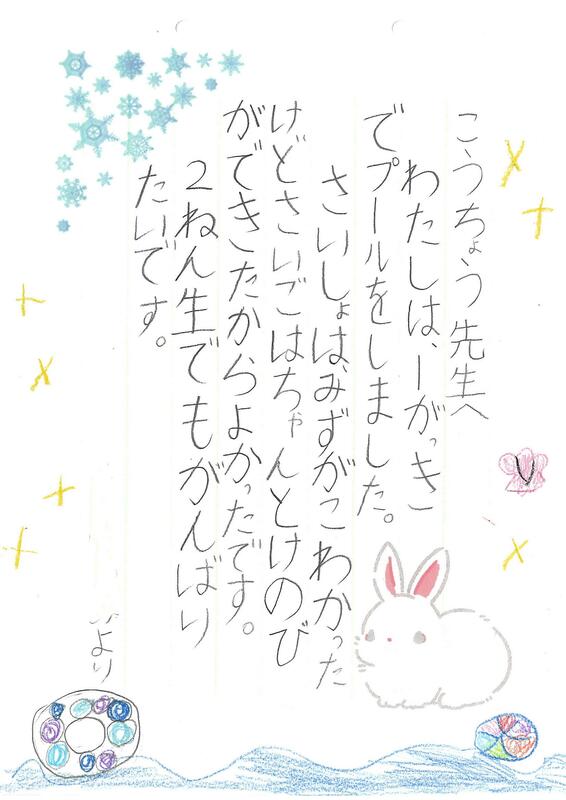 こうちょう先生へ
わたしは、一がっき
でプールをしました。
さいしょは、みずがこわかった
けどさいごはちゃんとけのび
ができたからよかったです。
2ねん生でもがんばり
たいです。
より